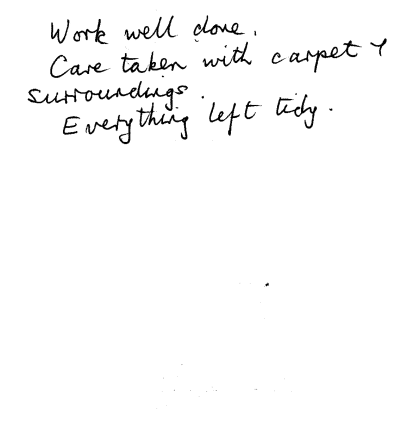 Work well done.
Care taken with carpet &
surroundings.
Everything left tidy.